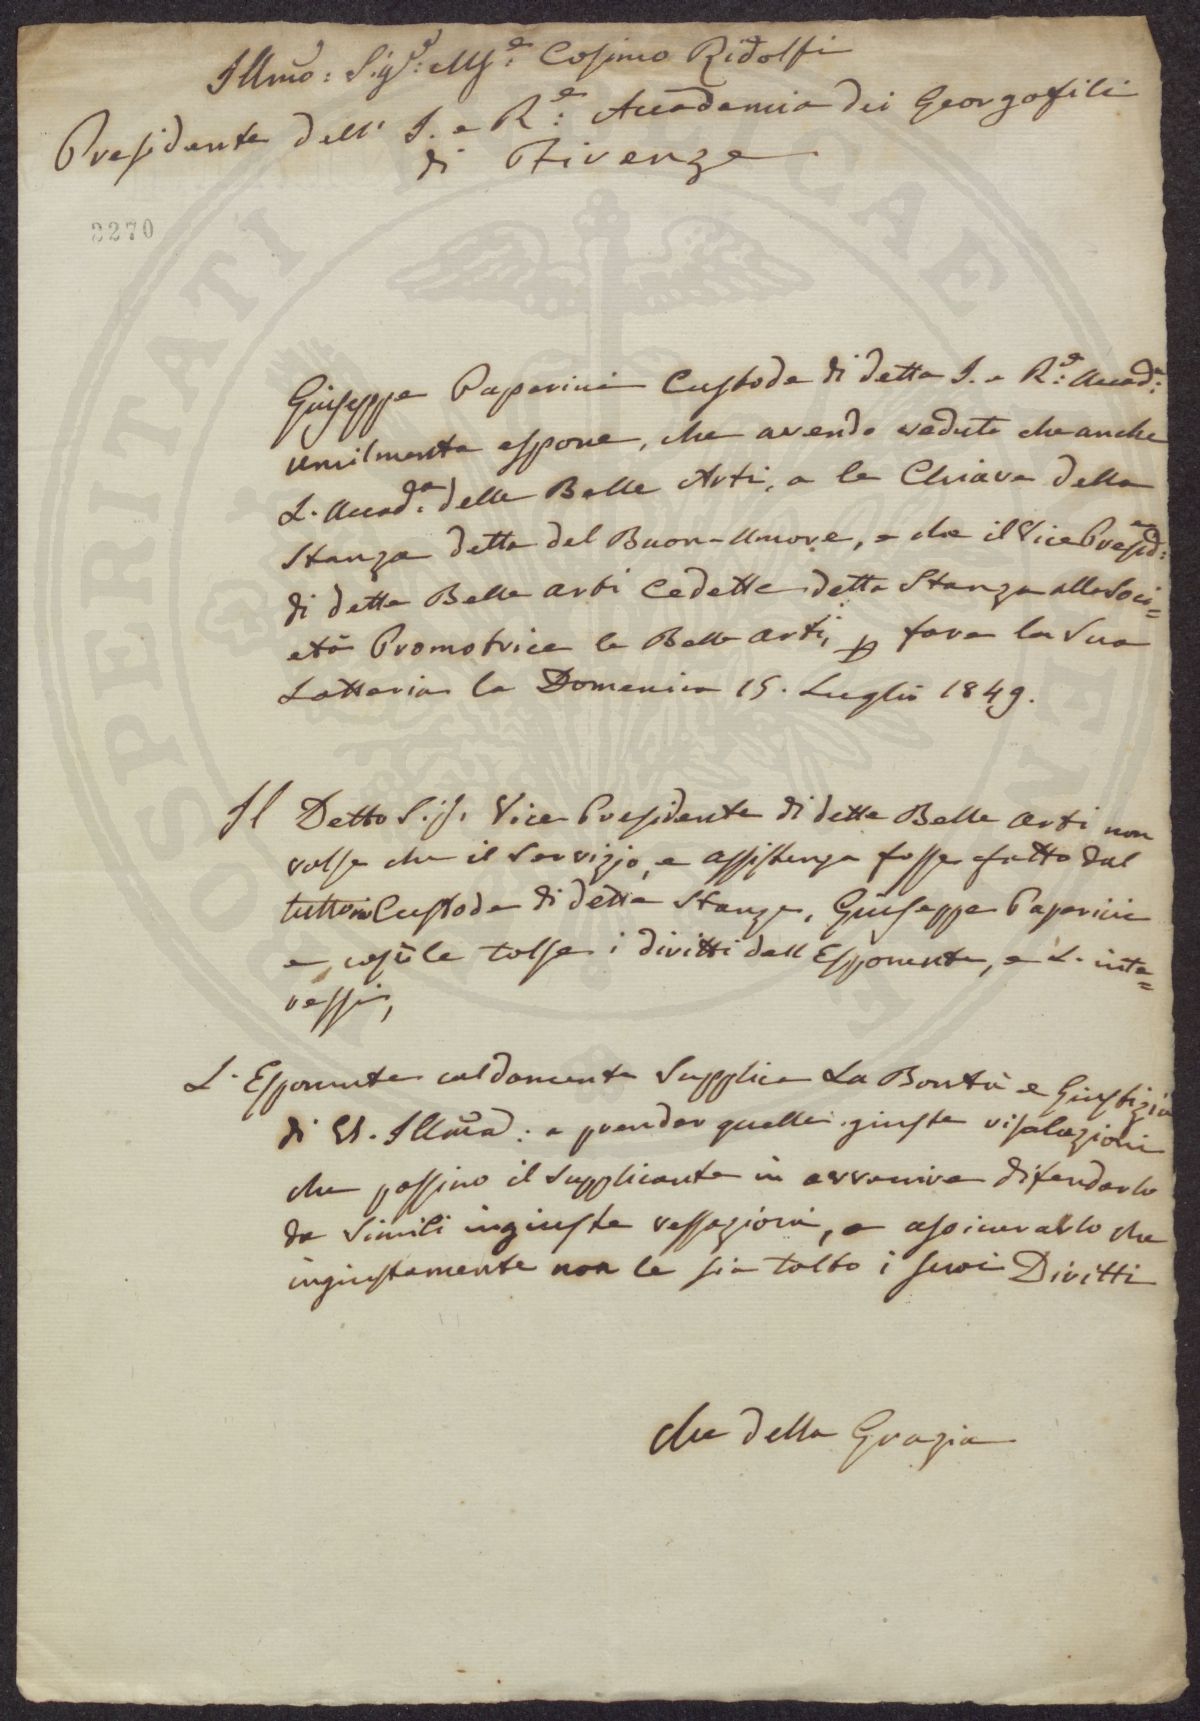 Illmo: Sigre: Mse: Cosimo Ridolfi
Presidente dell' I. e Re: Accademia dei Georgofili
di Firenze
2270
Giuseppe Paperini Custode di detta I. e Re: Accada:
umilmente espone, che avendo veduto che anche
L. Accada: delle Belle Arti, a le Chiave della
Stanza detta del Buon-Umore, e che il Vice Presid:e
di dette Belle arti Cedette detta Stanza alla Soci=
età Promotrice le Belle arti, p fare la Sua
Lotteria la Domenica 15. Luglio 1849.
Il Detto Sig. Vice Presidente di dette Belle arti non
volse che il Servizio, e assistenza fosse fatto dal
Custode di detta Stanza, Giuseppe Paperini
e, così le tolse i diritti dell Esponente, e L. inte=
ressi,
L. Esponente caldamente Supplica La Bontà e Giustizia
di VS. Illma: a prender quelle giuste risolazioni
che possino il Supplicante in avvenire difenderlo
da Simili ingiuste vessazioni, e assicurarlo che
ingiustamente non le sia tolto i suoi Diritti
che della Grazia